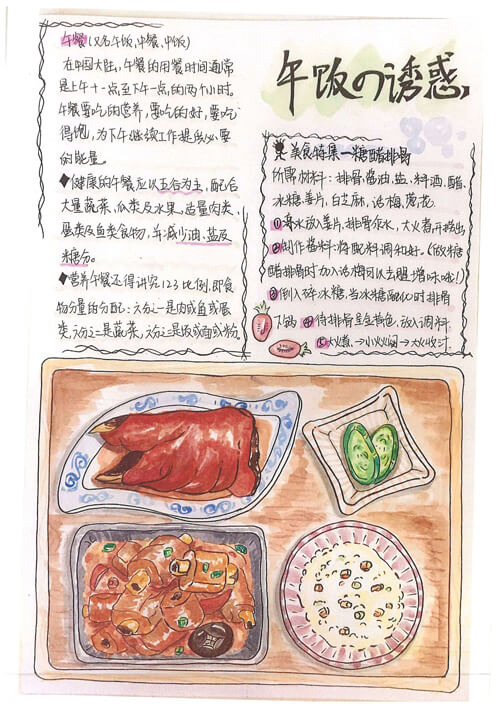 午饭の诱惑
午餐(又名午饭,中餐,中饭)
在中国大陆,午餐的用餐时间通常
是上午十一点至下午一点的两个小时,
午餐要吃的营养,要吃的好,要吃
得饱,为下午继续工作提供必要
的能量。
◆健康的午餐应以五谷为主,配合
大量蔬菜,瓜类及水果,适量肉类,
蛋类及鱼类食物,并减少油,盐及
糖分。
◆营养午餐还得讲究123比例,即食
物分量的分配:六分之一是肉或鱼或蛋
类,六分之二是蔬菜,六分之三是饭或面或粉。
美食特集—糖醋排骨
所需材料:排骨、酱油、盐、料酒、醋、
冰糖、姜片,白芝麻,话梅,葱花.
①凉水放入姜片,排骨焯水,大火煮开捞出
②制作酱料:将配料调和好。(做糖
醋排骨时加入话梅可以去腥增味哦!)
③倒入碎冰糖,当冰糖融化时排骨
入锅 ④待排骨呈金黄色,放入调料.
⑤大火煮.→小火焖→大火收汁.